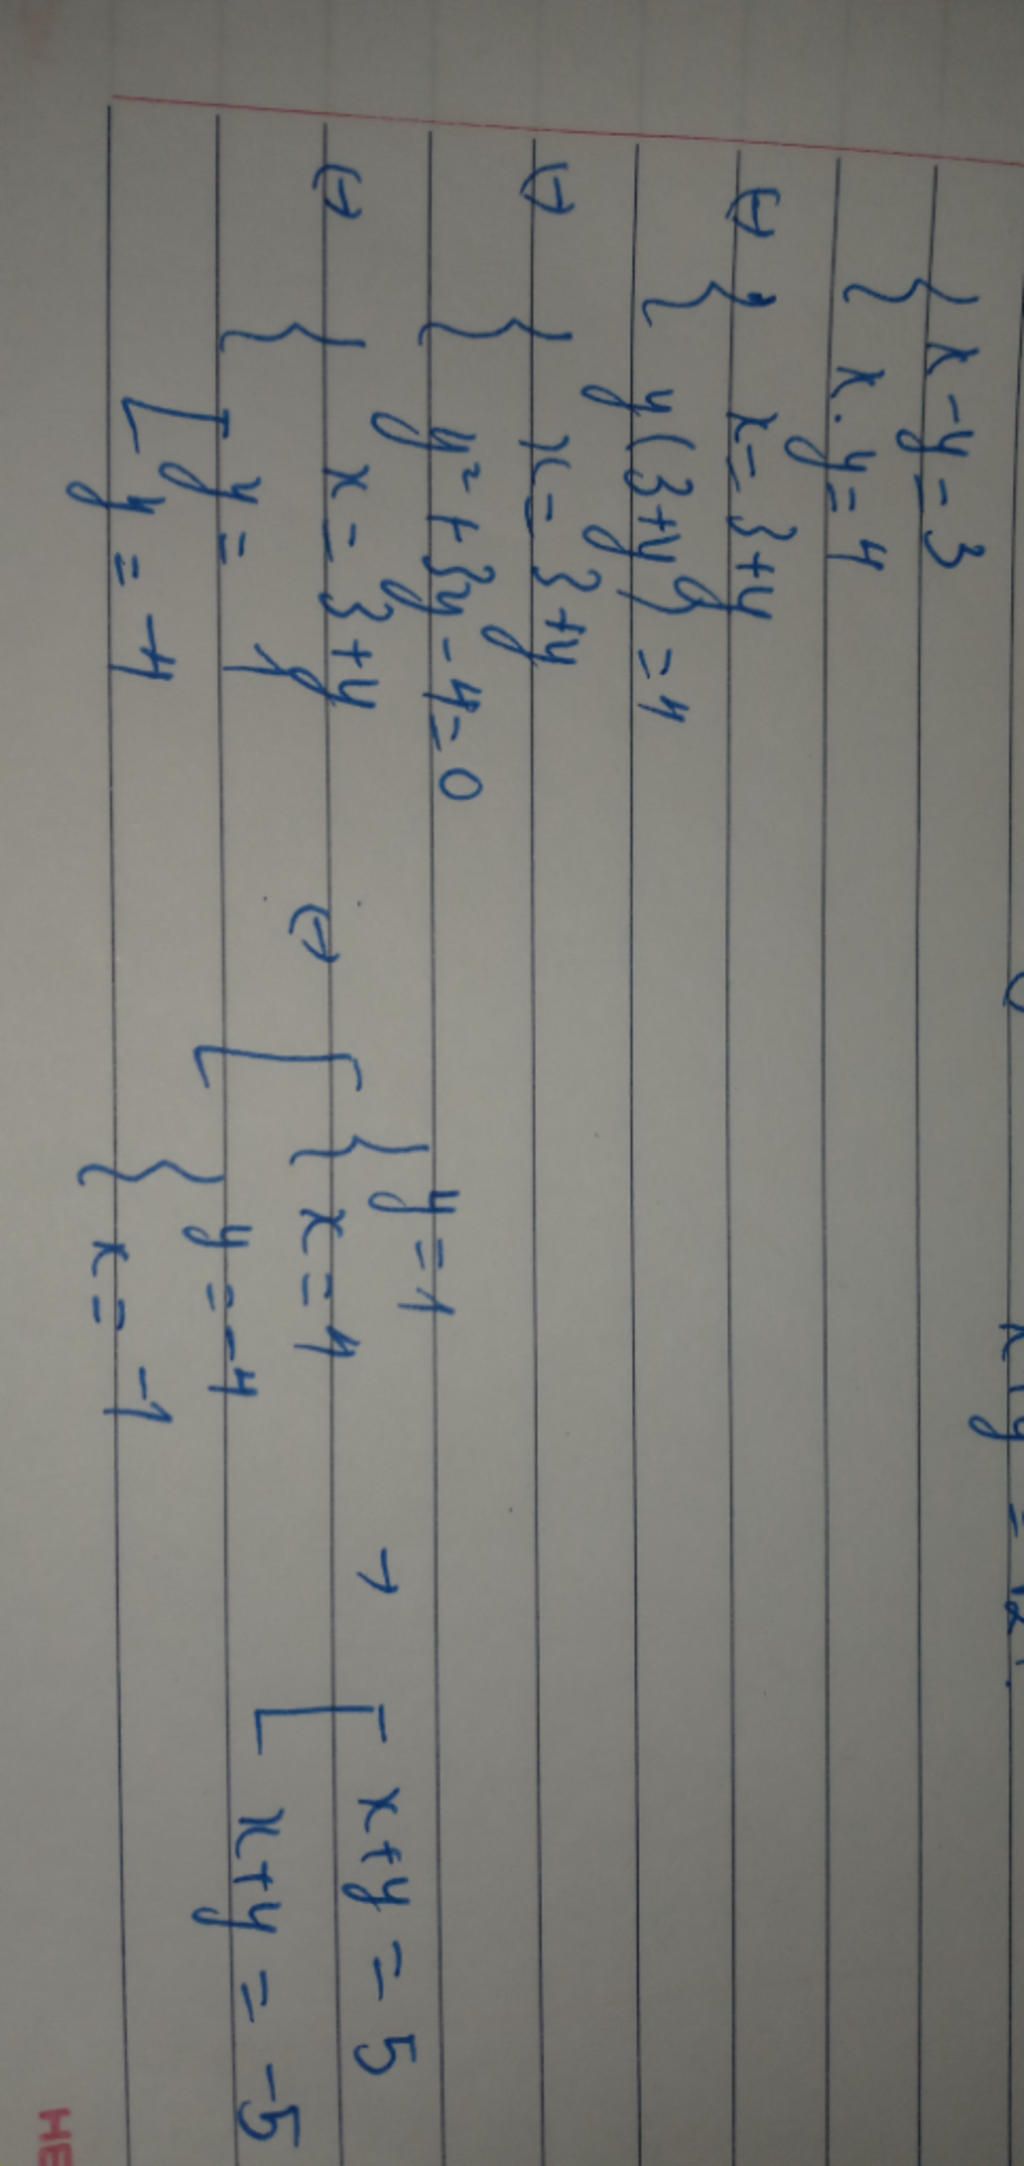 { x - y = 3
{ x . y = 4
↔ { x = 3 + y
{ y(3+y) = 4
↔ { x = 3 + y
{ y² + 3y - 4 = 0
↔ { x = 3 + y
[ y = 1
[ y = -4
↔ [ { y = 1
{ x = 4
{ y = -4
{ x = -1
→ [ x + y = 5
[ x + y = -5
HE